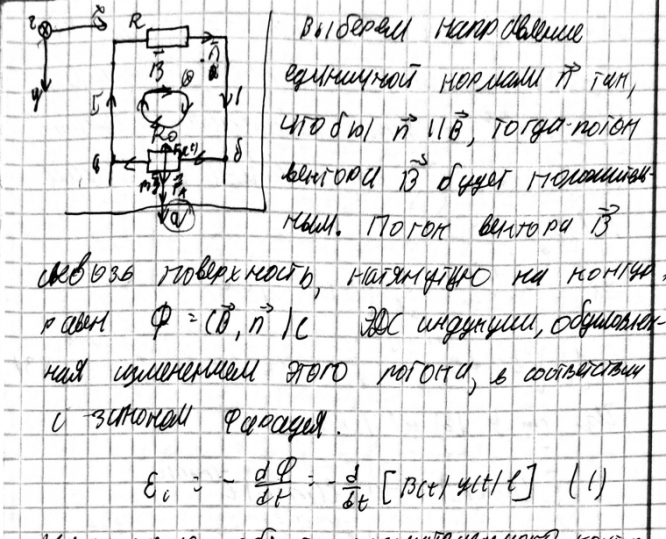 Выберем направление
единичной нормали n⃗ так,
чтобы n⃗ || B⃗, тогда поток
вектора B⃗ будет положитель-
ным. Поток вектора B⃗
сквозь поверхность, натянутую на контур,
равен Φ = (B⃗, n⃗)С ЭДС индукции, обусловлен-
ная изменением этого потока, в соответствии
с законом Фарадея.
εi = - dΦ/dt = - d/dt [B(t) y(t) l] (1)
R
B⃗
n⃗
R0